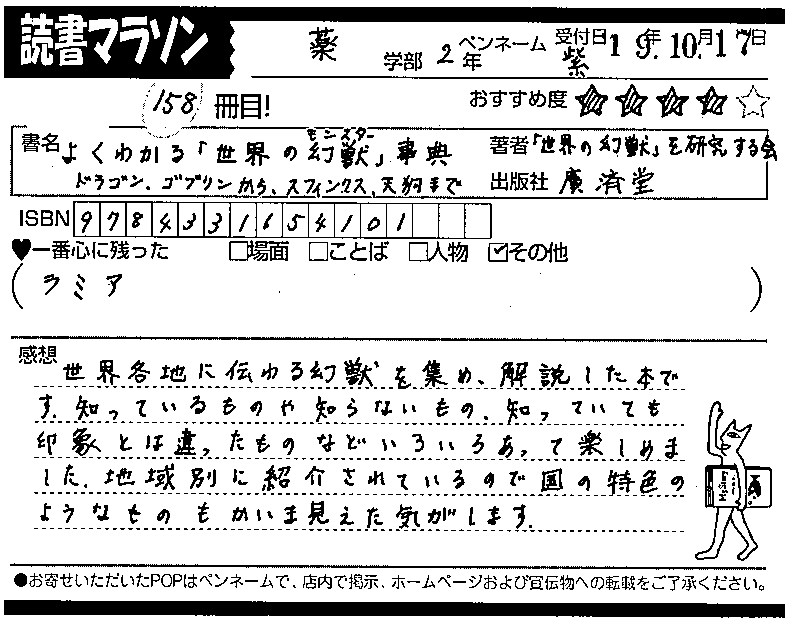 読書マラソン
薬 学部 2年 ペンネーム 紫 受付日 19年 10月 17日
158 冊目! おすすめ度 ★★★★☆
書名 よくわかる「世界の幻獣」事典 モンスター 著者「世界の幻獣」を研究する会
ドラゴン、ゴブリンから、スフィンクス、天狗まで 出版社 廣済堂
ISBN 9784331654101
♥一番心に残った □場面 □ことば □人物 ☑その他
(ラミア)
感想
世界各地に伝わる幻獣を集め、解説した本で
す。知っているものや知らないもの、知っていても
印象とは違ったものなどいろいろあって楽しめま
した。地域別に紹介されているので国の特色の
ようなものもかいま見えた気がします。
●お寄せいただいたPOPはペンネームで、店内で掲示、ホームページおよび宣伝物への転載をご了承ください。